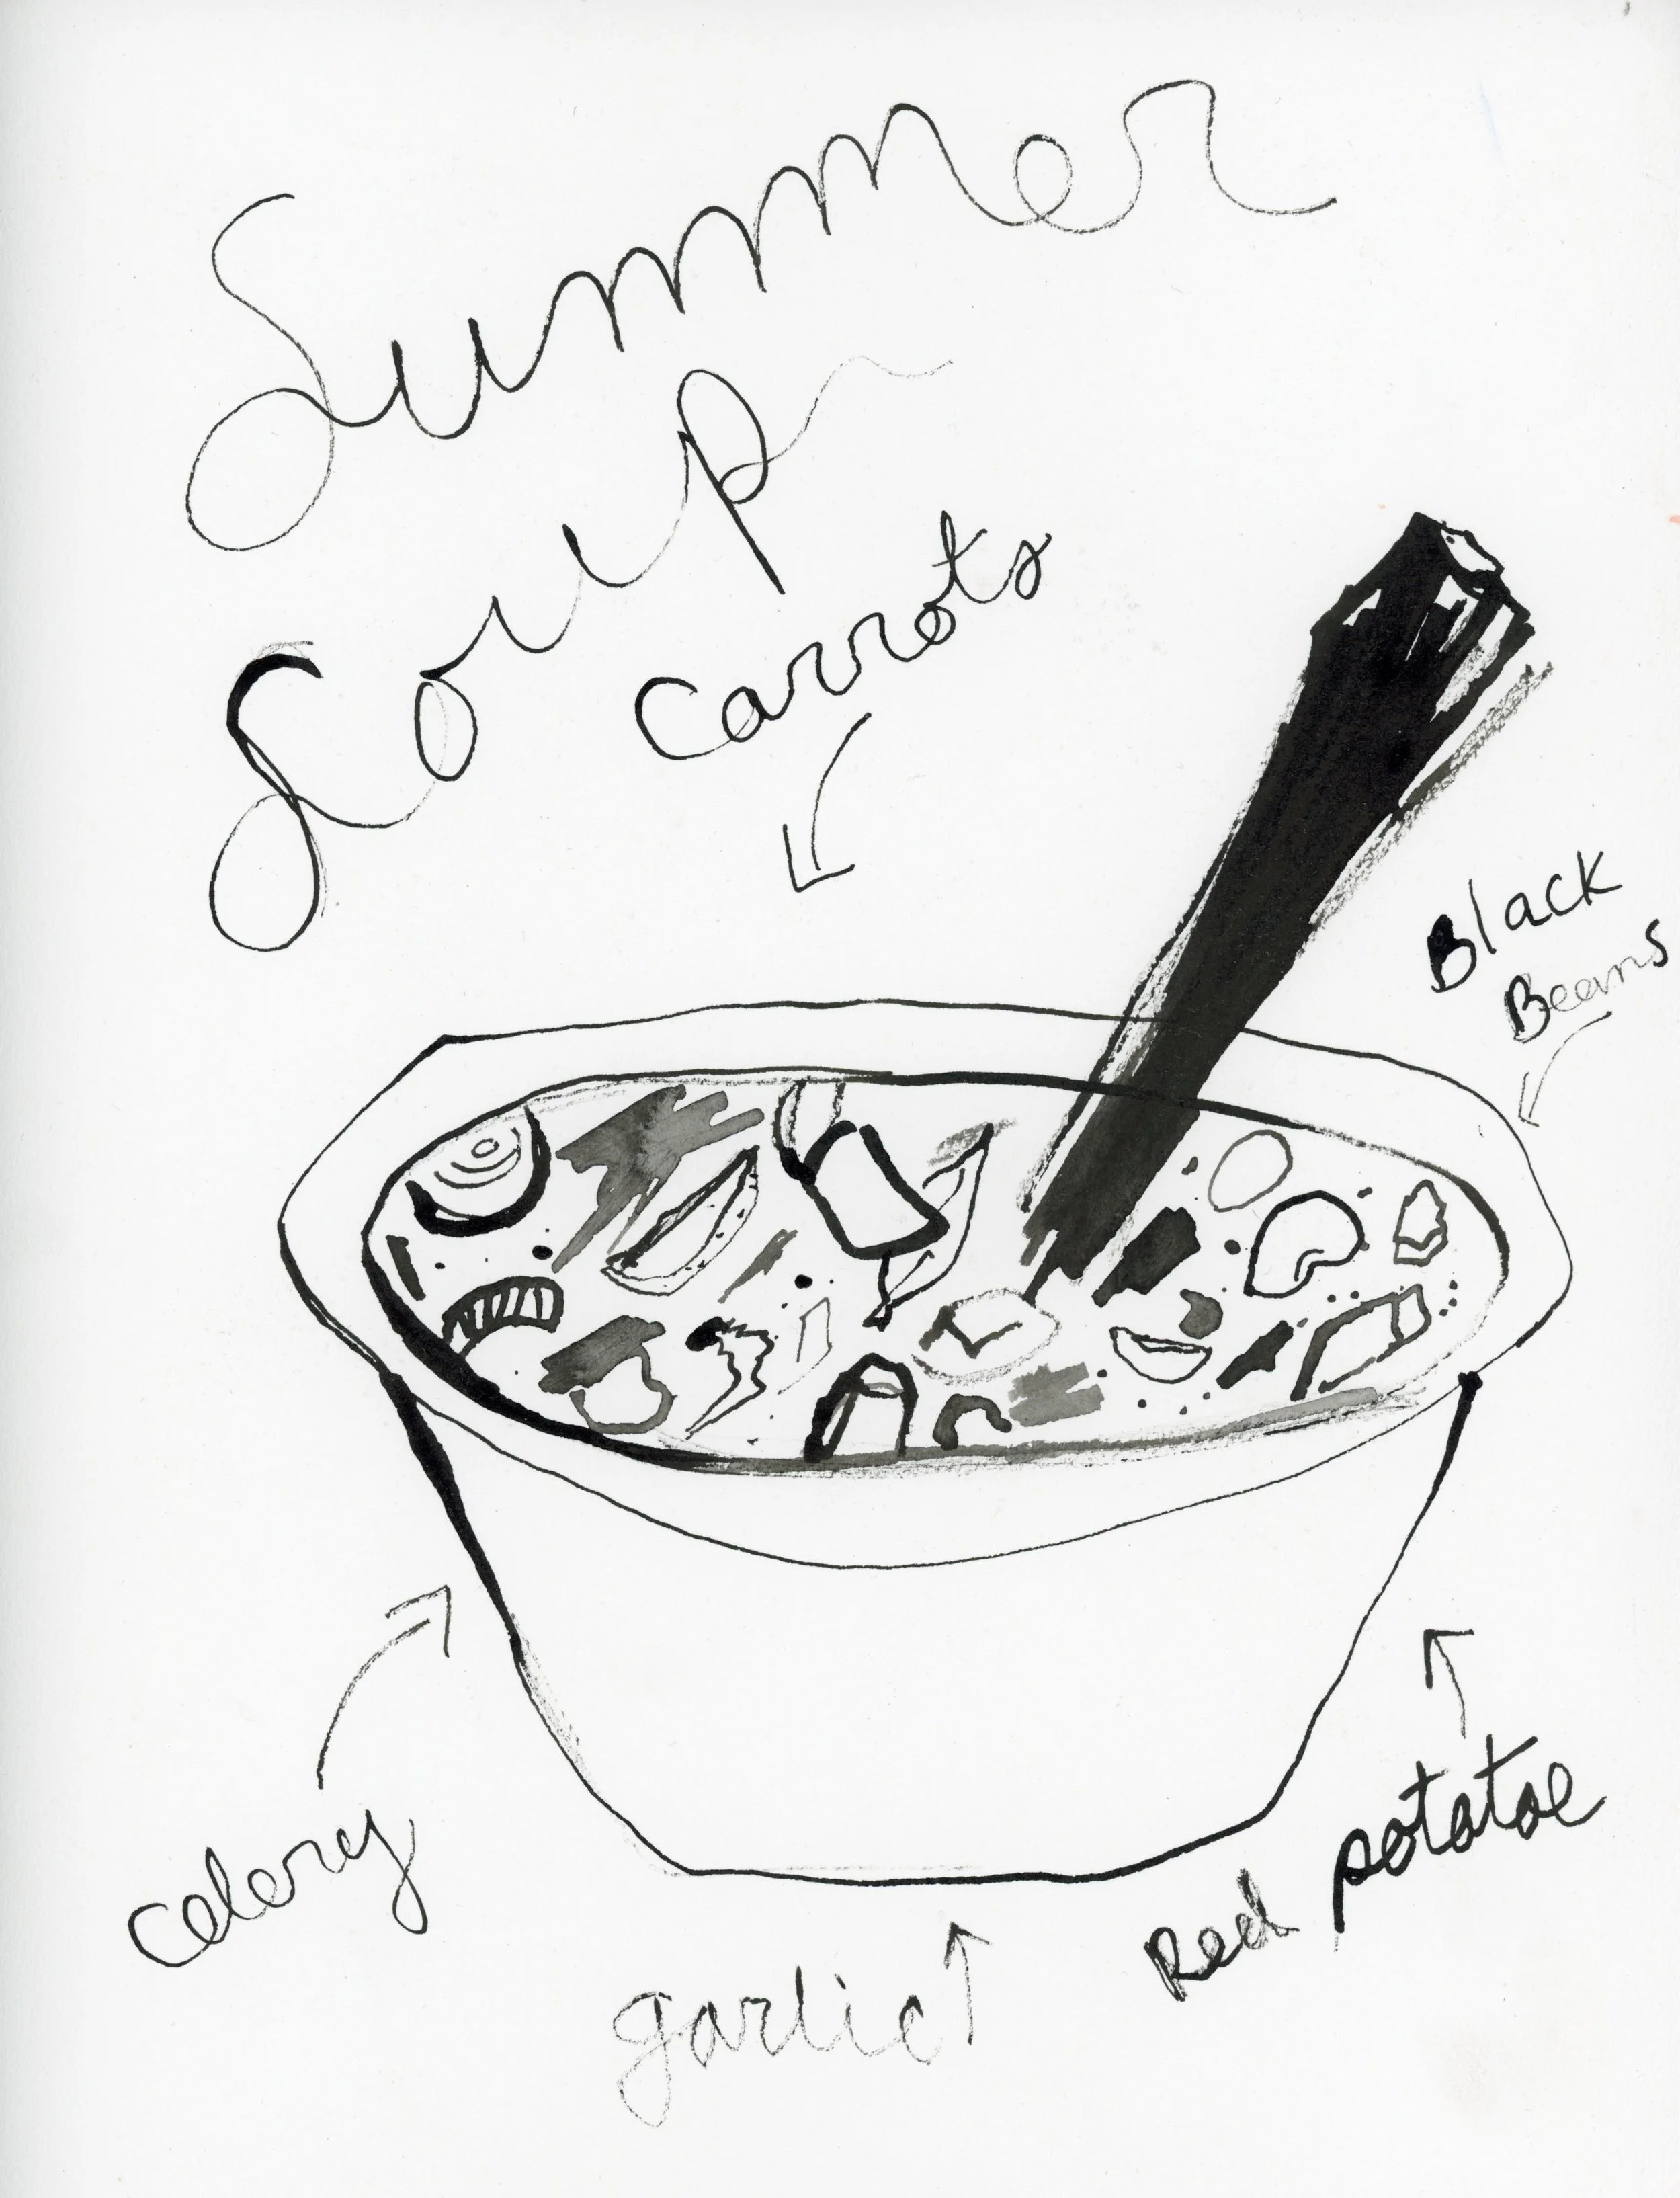 Summer
Soup
Carrots
Black
Beans
Celery
garlic
Red potatoe